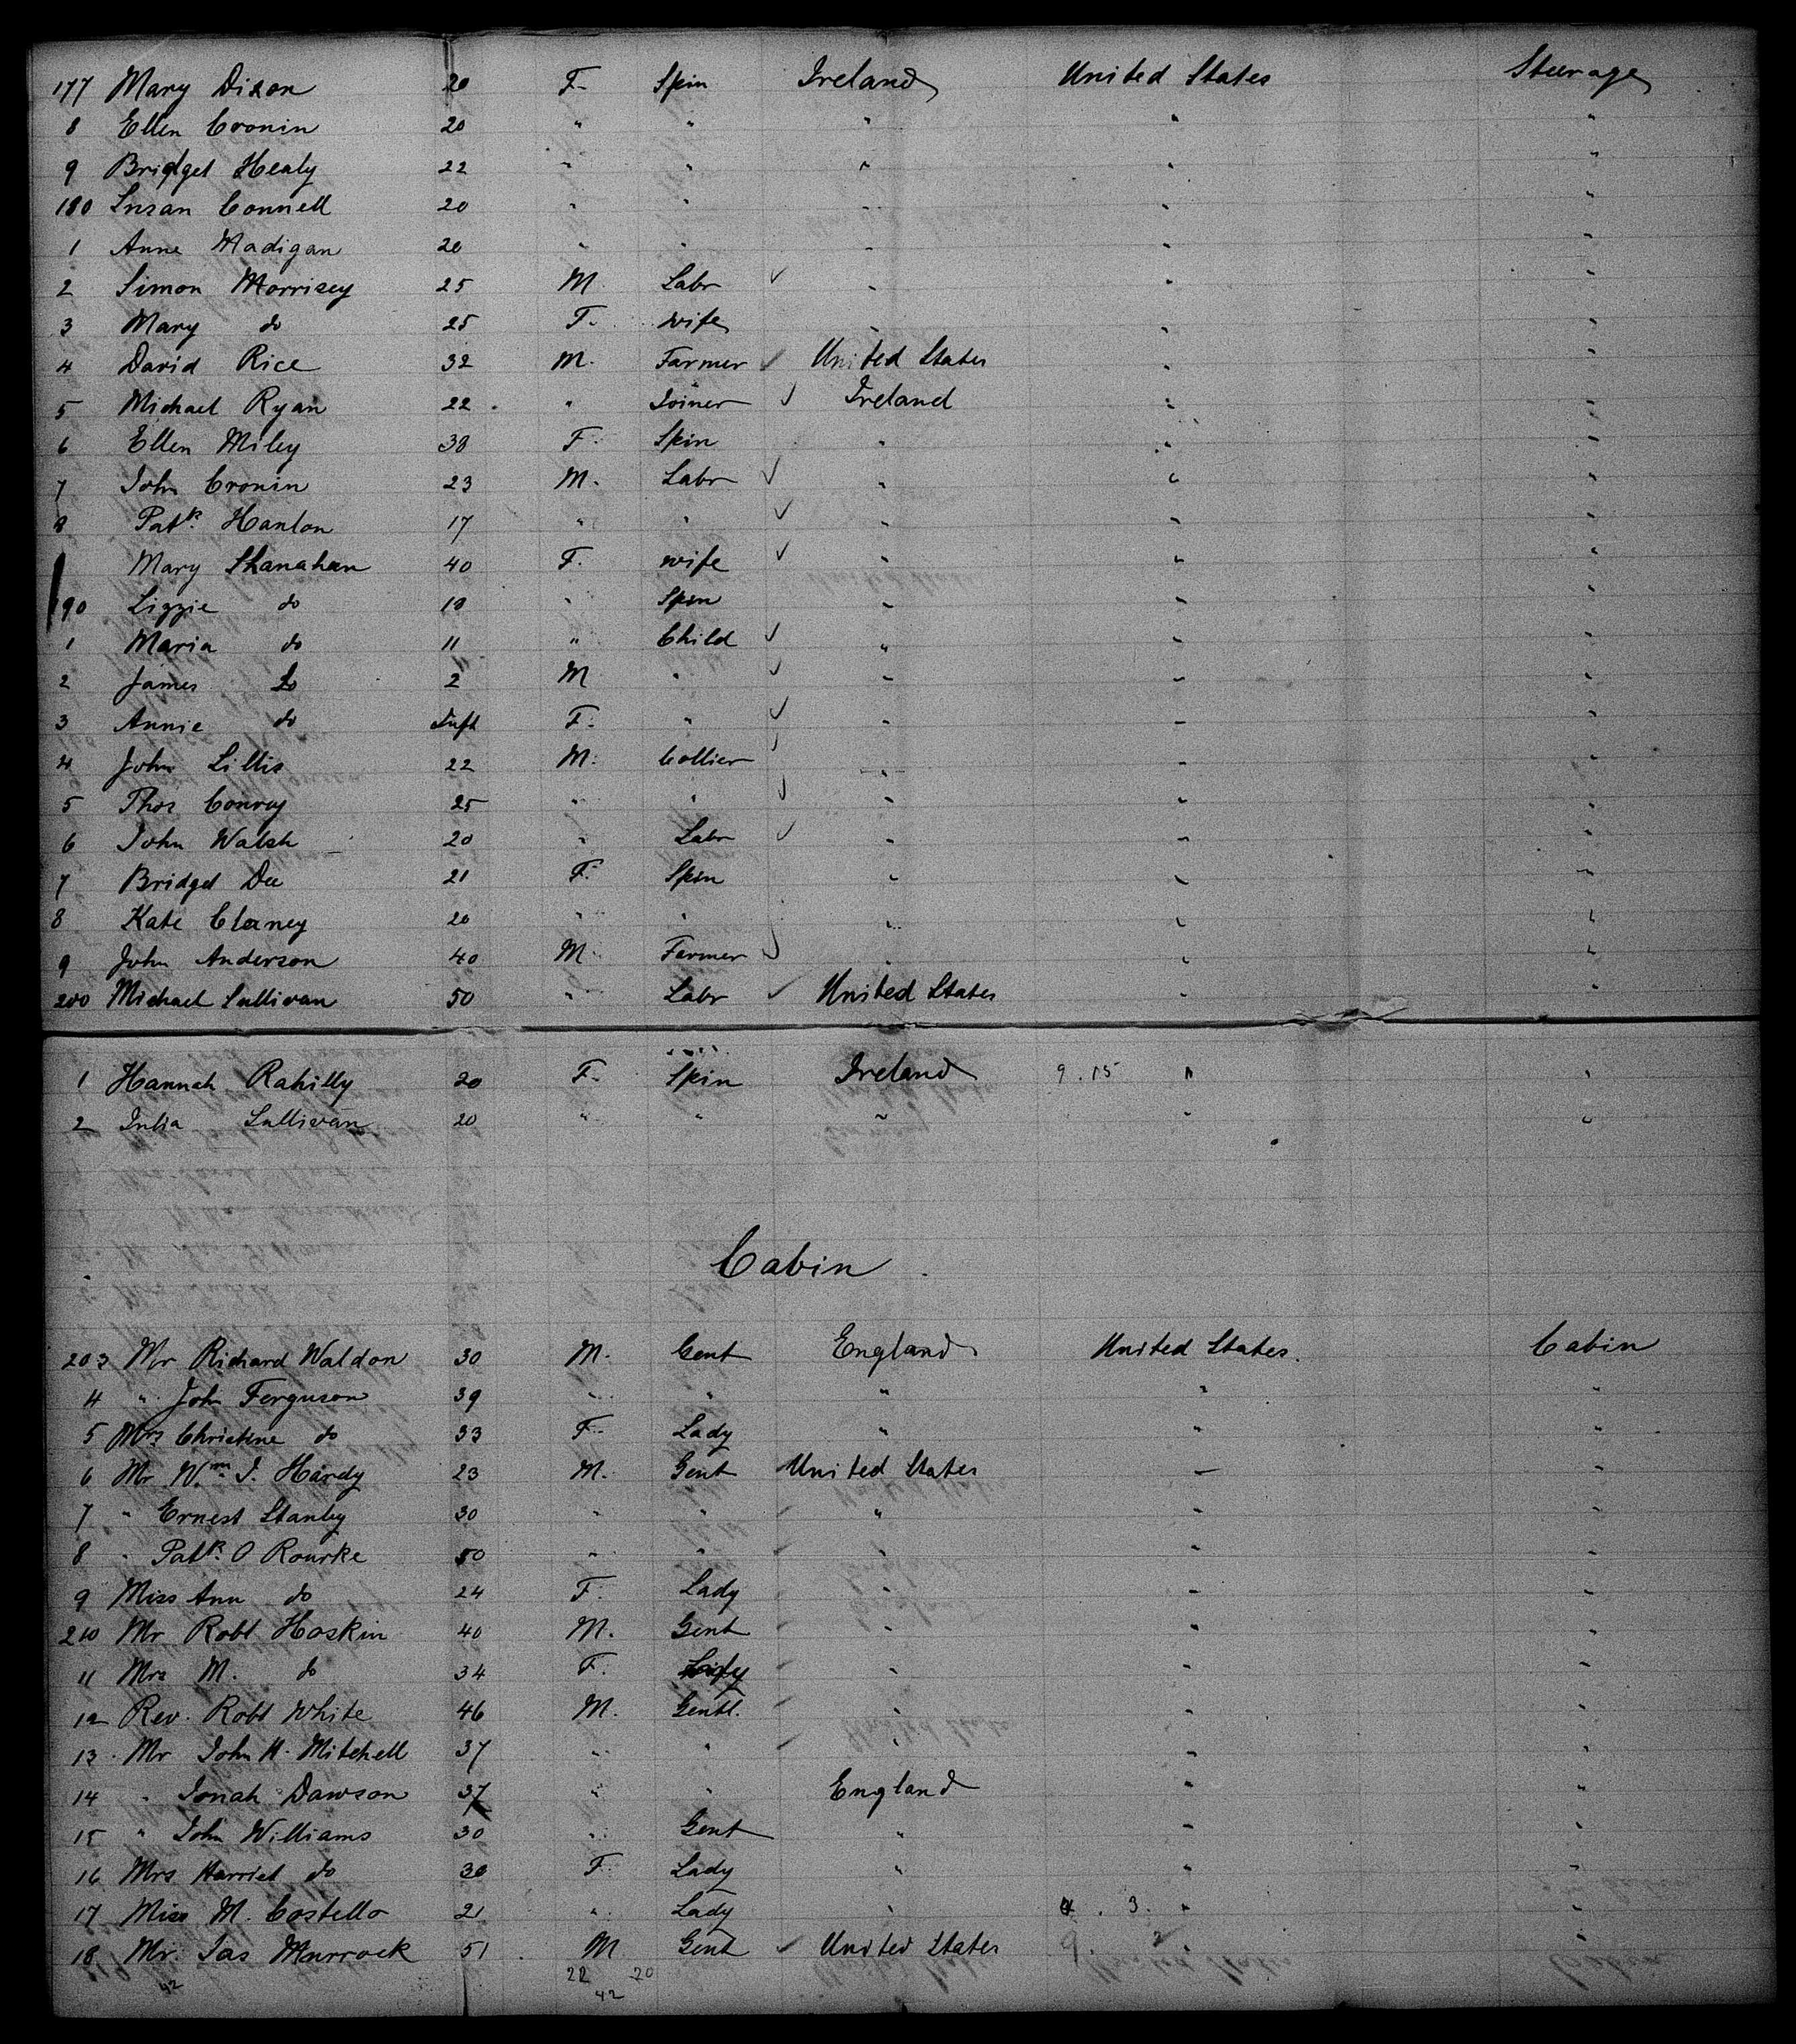 177 Mary Dixon 20 F. Spin Ireland United States Steerage
8 Ellen Cronin 20 " " " " "
9 Bridget Healy 22 " " " " "
180 Susan Connell 20 " " " " "
1 Anne Madigan 20 " " " " "
2 Simon Morrisey 25 M. Labr ✓ " " "
3 Mary do 25 F. wife " " "
4 David Rice 32 M. Farmer ✓ United States " "
5 Michael Ryan 22 " Joiner ✓ Ireland " "
6 Ellen Miley 38 F. Spin " " "
7 John Cronin 23 M. Labr ✓ " " "
8 Patk. Hanlon 17 " " ✓ " " "
Mary Shanahan 40 F. wife ✓ " " "
190 Lizzie do 18 " Spin " " "
1 Maria do 11 " Child ✓ " " "
2 James do 2 M " ✓ " " "
3 Annie do Inft F. " ✓ " " "
4 John Lillis 22 M. Collier ✓ " " "
5 Thos Conroy 25 " " ✓ " " "
6 John Walsh 20 " Labr ✓ " " "
7 Bridget Dee 21 F. Spin " " "
8 Kate Clancy 20 " " " " "
9 John Anderson 40 M. Farmer ✓ " " "
200 Michael Sullivan 50 " Labr ✓ United States " "
1 Hannah Rahilly 20 F. Spin Ireland 9.15 " "
2 Julia Sullivan 20 " " " " "
Cabin
203 Mr Richard Waldon 30 M. Gent England United States. Cabin
4 " John Ferguson 39 " " " " "
5 Mrs Christine do 33 F. Lady " " "
6 Mr Wm. J. Hardy 23 M. Gent United States " "
7 " Ernest Stanley 30 " " " " "
8 " Patk. O Rourke 50 " " " " "
9 Miss Ann do 24 F. Lady " " "
210 Mr Robt Hoskin 40 M. Gent " " "
11 Mrs M. do 34 F. " " "
12 Rev. Robt White 46 M. Gentl. " " "
13 Mr John H. Mitchell 37 " " " " "
14 " Jonah Dawson 37 " " England " "
15 " John Williams 30 " Gent " " "
16 Mrs Harriet do 30 F. Lady " " "
17 Miss M. Costello 21 " Lady " 3. " "
18 Mr. Jas Murrock 51 M Gent ✓ United States "
42 22 20
42